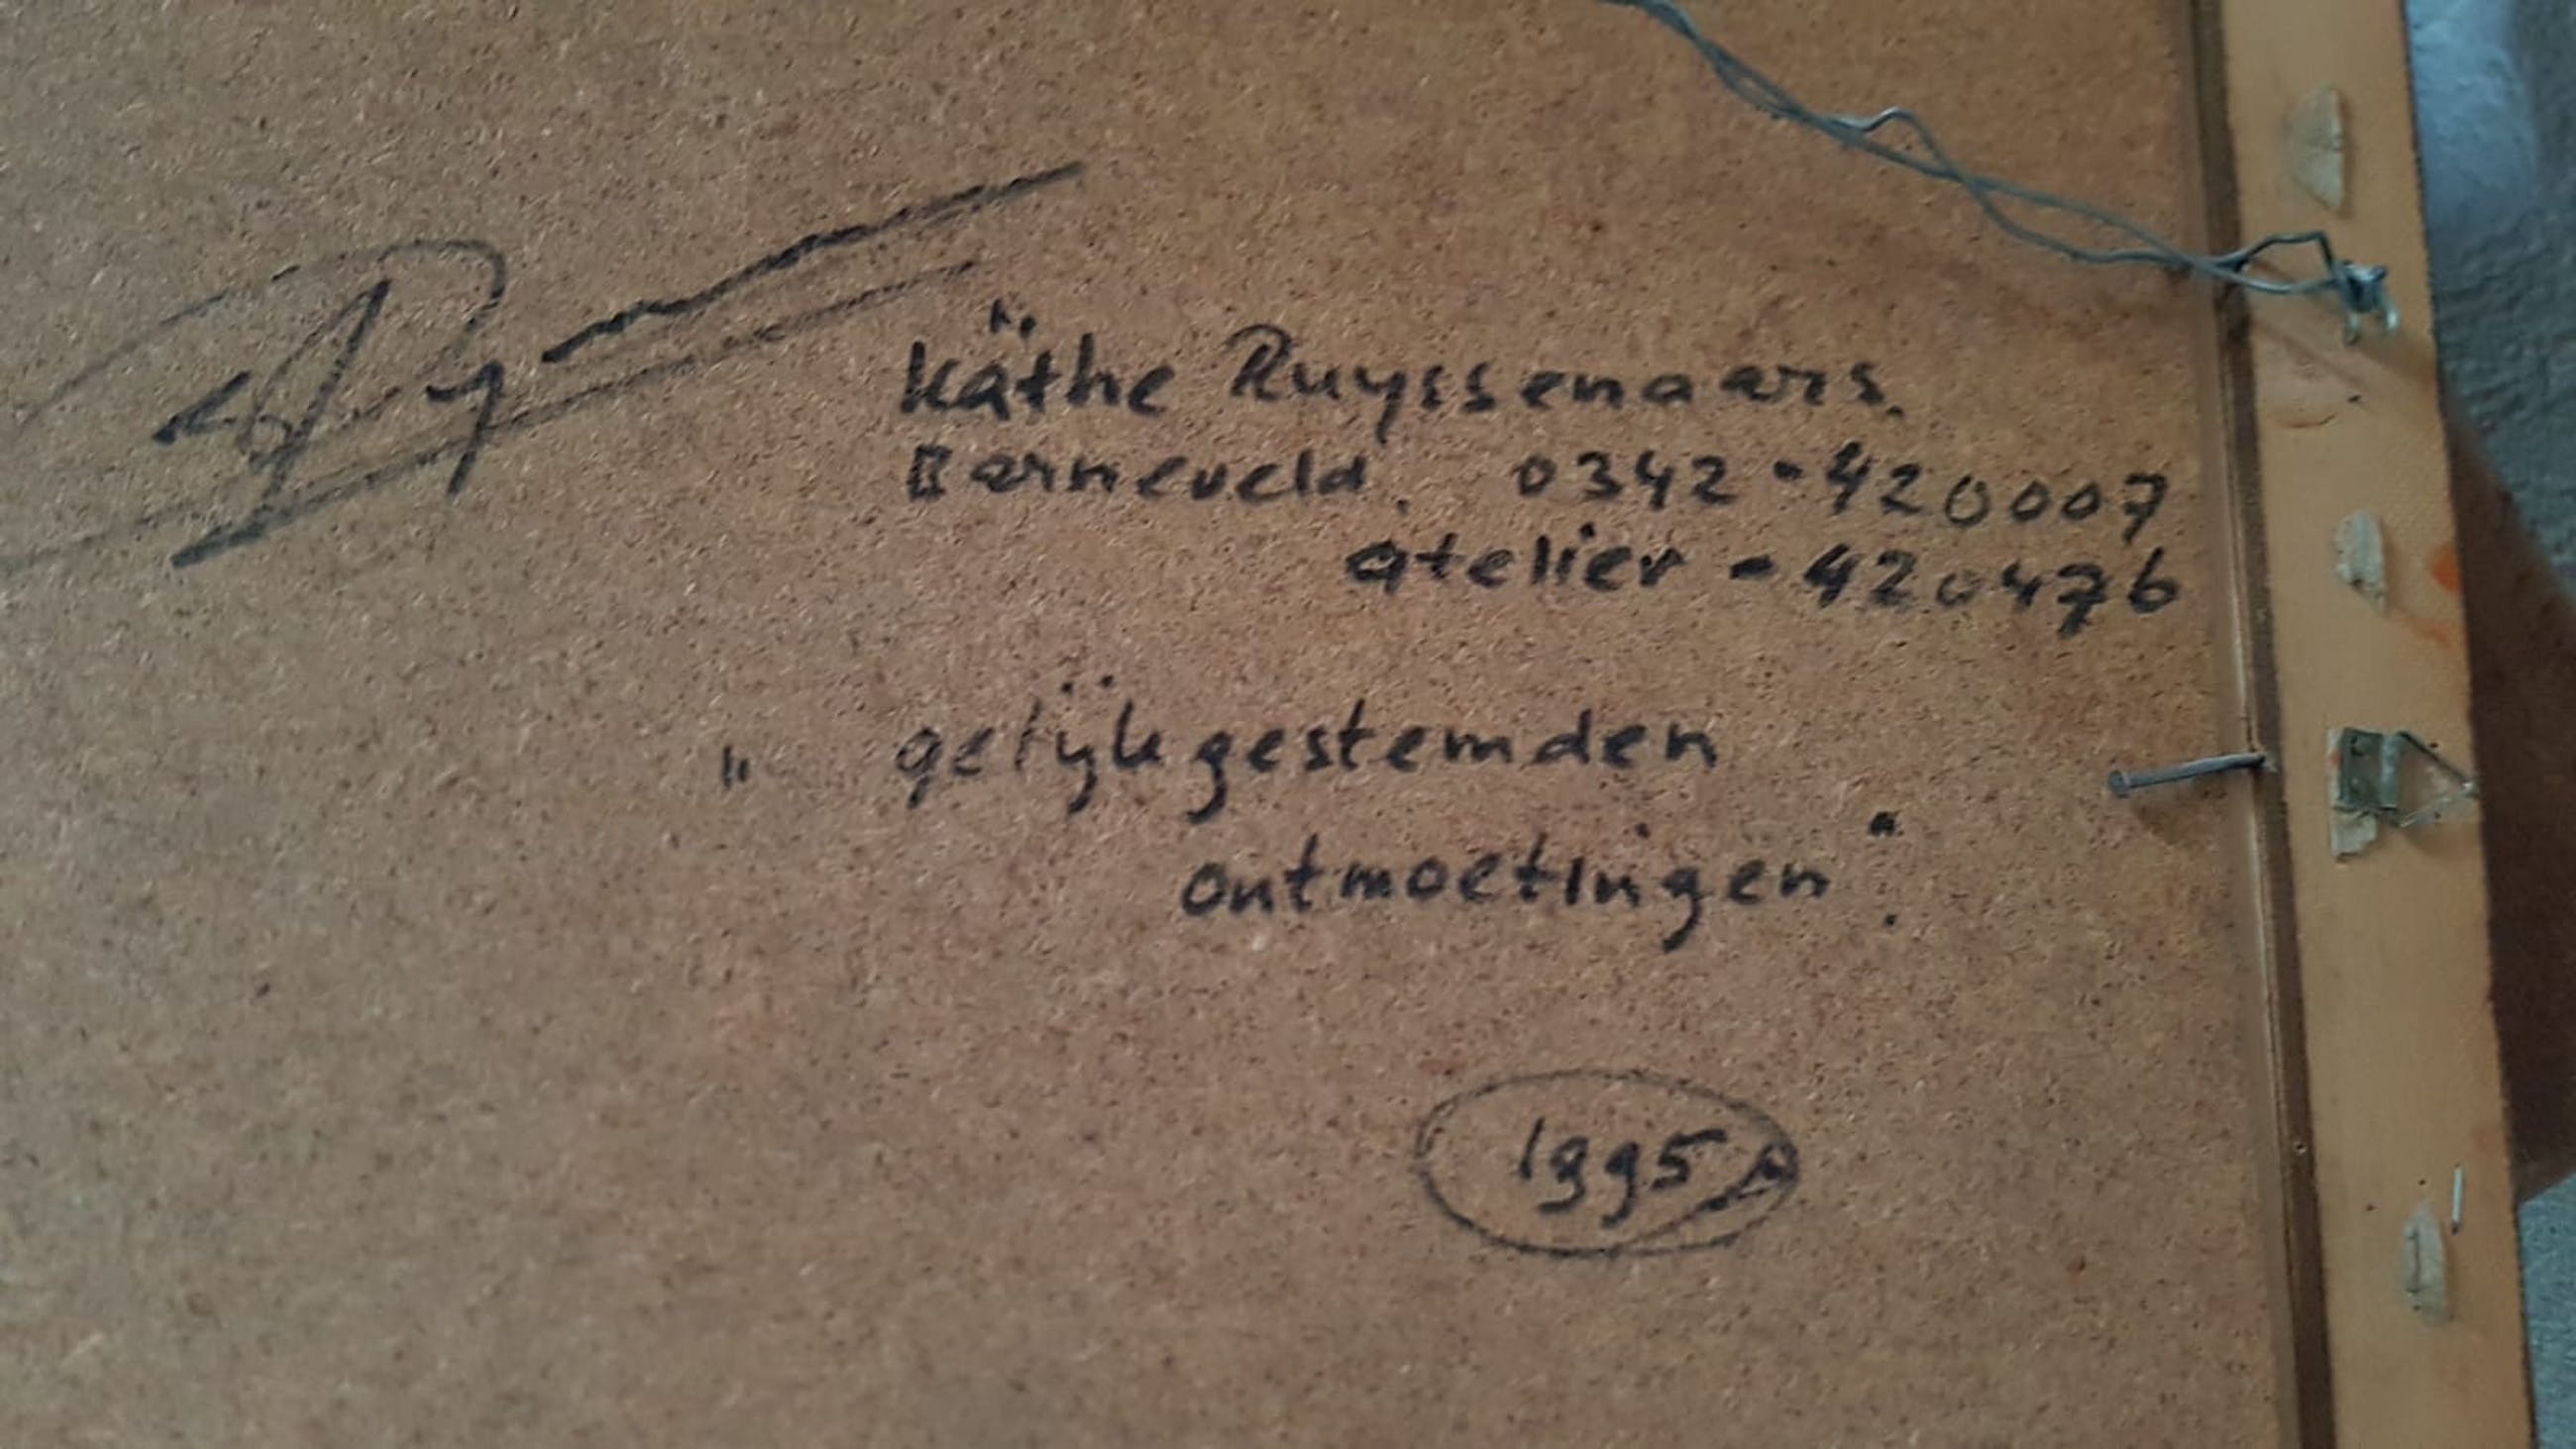 Käthe Ruyssenaars.
Barneveld. 0342-420007
atelier - 420476
" gelijkgestemden
ontmoetingen".
1995